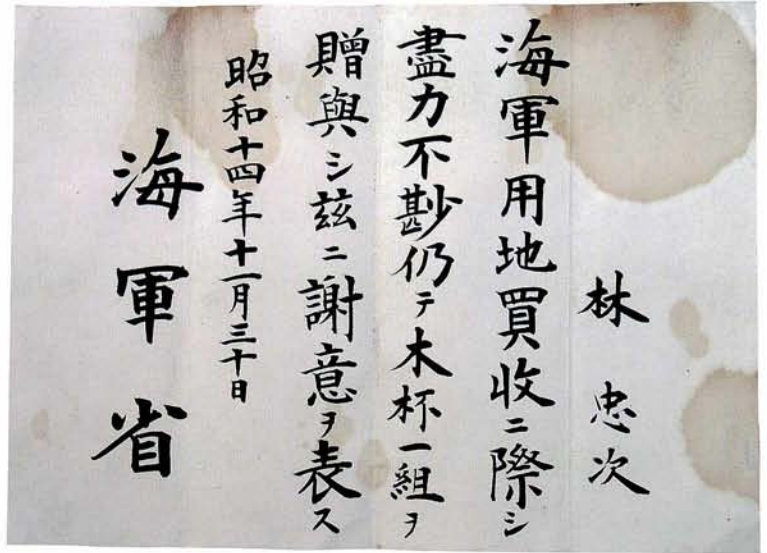 林忠次
海軍用地買収ニ際シ
盡力不尠仍テ木杯一組ヲ
贈與シ茲ニ謝意ヲ表ス
昭和十四年十一月三十日
海軍省